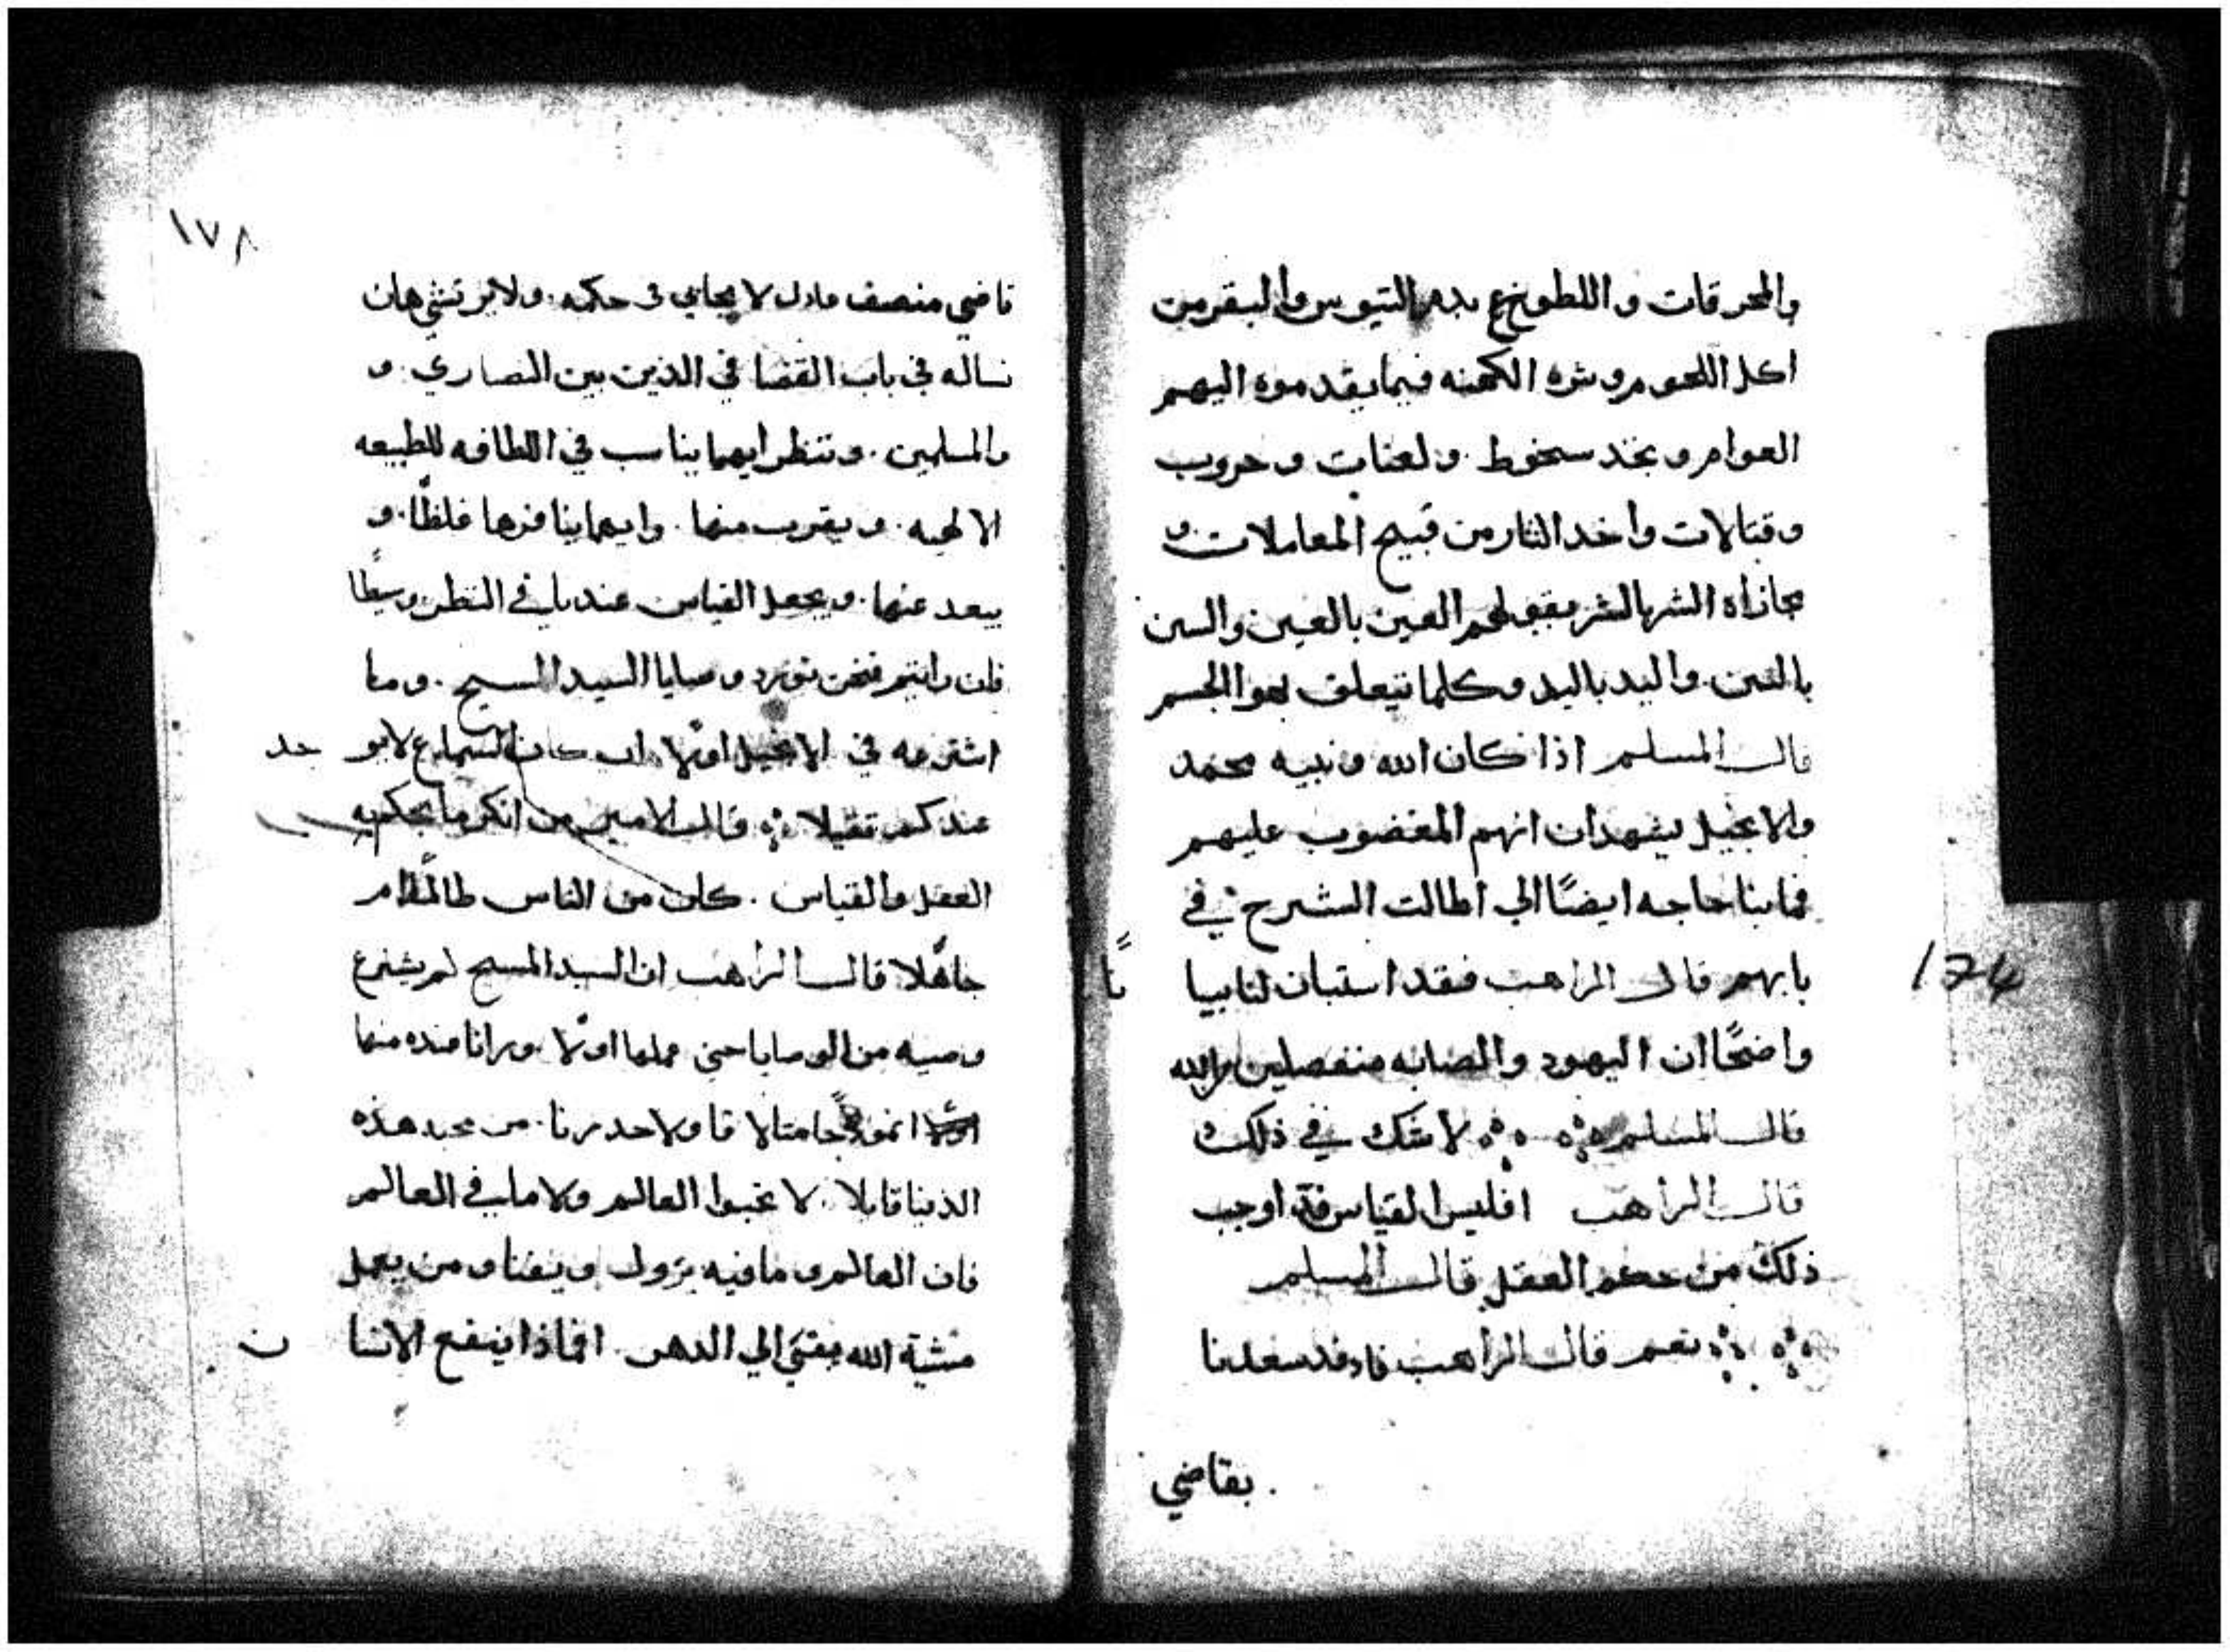 والمحرقات واللطوخ بدم التيوس والبقر من
اكل اللحوم وشره الكهنه فيما يقدموه اليهم
العوام و سخوط . ولعنات وحروب
وقتالات واخد التار من قبيح المعاملات و
مجازاه الشر بالشر بقولهم العين بالعين والسن
بالسن واليد باليد وكلما يتعلق بهوا الجسم
قال المسلم اذا كان الله ونبيه محمد
والانجيل يشهدان انهم المغضوب عليهم
فما بنا حاجه ايضًا الي اطالت الشرح في
بابهم قال الراهب فقد استبان لنا بيا نًا
174
واضحًا ان اليهود والصابه منفصلين
قال المسلم لا شك في ذلك
قال الراهب افليس القياس قد اوجب
ذلك من حكم العقل قال المسلم
نعم قال الراهب
بقاضي
١٧٨
قاضي منصف عادل لا يحابي في حكمه . ولا يرتشي هان
نساله في باب القضا في الدين بين النصاري . و
والمسلمين . وننظر ايهما يناسب في اللطافه للطبيعه
الالهيه . ويقرب منها . وايهما ينافرها غلظًا . و
يبعد عنها . ويجعل القياس عندنا في النظر وسيطًا
فان رايتم فنحن نورد وصايا السيد المسيح . وما
اشترعه في الانجيل اولًا ان كان السماع لا يو جد
عندكم تقيلا قال الامير من انكر ما يحكم به
العقل والقياس . كان من الناس ظالمًا ام
جاهلًا قال الراهب ان السيد المسيح لم يشرع
وصيه من الوصايا حتي عملها اولًا . ورانا منها
انموذجًا متالا قا ولا حدرنا . من محبه هذه
الدنيا قايلا . لا تحبوا العالم ولا ما في العالم
فان العالم وما فيه يزول ويفنا ومن يعمل
مشية الله يبقي الي الدهر . افماذا ينفع الانسا ن